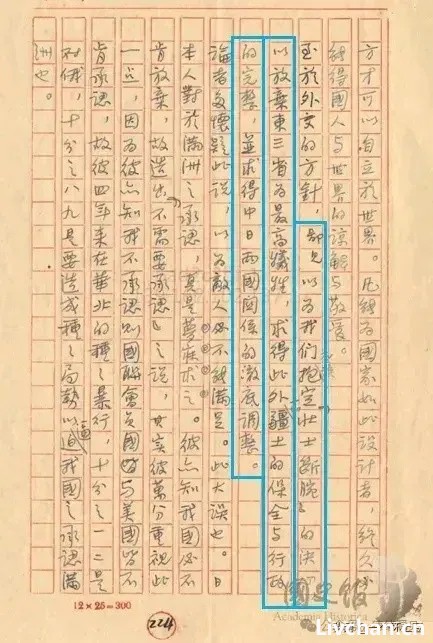 方才可以自立於世界。凡能為國家如此設計者，終久必
能得國人與世界的諒解與敬愛。
至於外交的方針，鄙見以為我們抱定壯士斷腕的決
以放棄東三省為最高犧牲，求得此外疆土的保全與行政
的完整，並求得中日兩國關係的澈底調整。
論者多懷疑此說，以為敵人必不能滿足。此大誤也。日
本人對於滿洲之承認，真是夢寐求之。彼亦知我國必不
肯放棄，故造出「不需要承認」之說，其實彼萬分重視此
一點，因為彼亦知我不承認則國聯會員國與美國皆不
肯承認，故彼四年來在華北的種種暴行，十分之一二是
對俄，十分之八九是要造成種種局勢以逼我國之承認滿
洲也。
12×25=300
224
國史館
Academia Historica